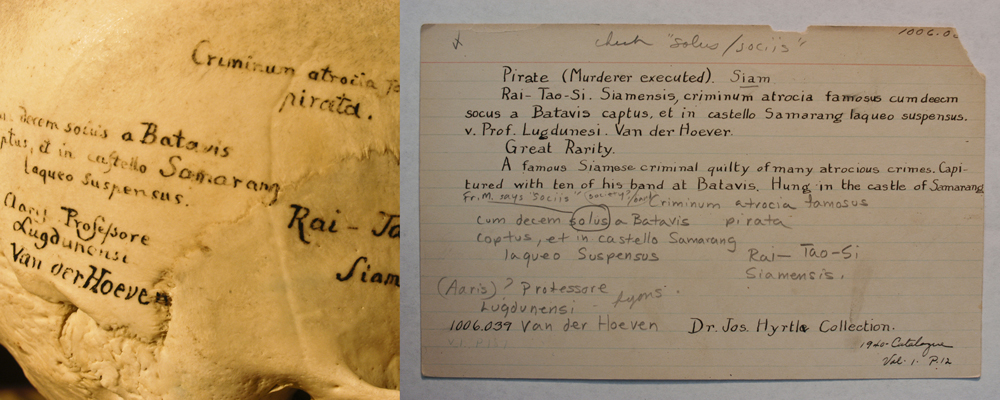 Criminum atrocia
pirata.
decem sociis a Batavis
ptus, et in castello Samarang
laqueo suspensus.
Professore
Lugdunensi
Van der Hoeven
Rai-
Siam
1006.
check "solus/sociis"
Pirate (Murderer executed). Siam
Rai-Tao-Si. Siamensis, criminum atrocia famosus cum decem
socus a Batavis captus, et in castello Samarang laqueo suspensus.
v. Prof. Lugdunesi. Van der Hoever.
Great Rarity.
A famous Siamese criminal guilty of many atrocious crimes. Capi-
tured with ten of his band at Batavis. Hung in the castle of Samarang
Fr. M. says "sociis"
Criminum atrocia famosus
cum decem solus a Batavis pirata
coptus, et in castello Samarang
laqueo Suspensus
Rai-Tao-Si
Siamensis.
(Aaris)? Professore
Lugdunensi - Lyons.
1006.039 Van der Hoeven Dr. Jos. Hyrtle Collection.
1940-Catalogue
Vol. 1. P.12